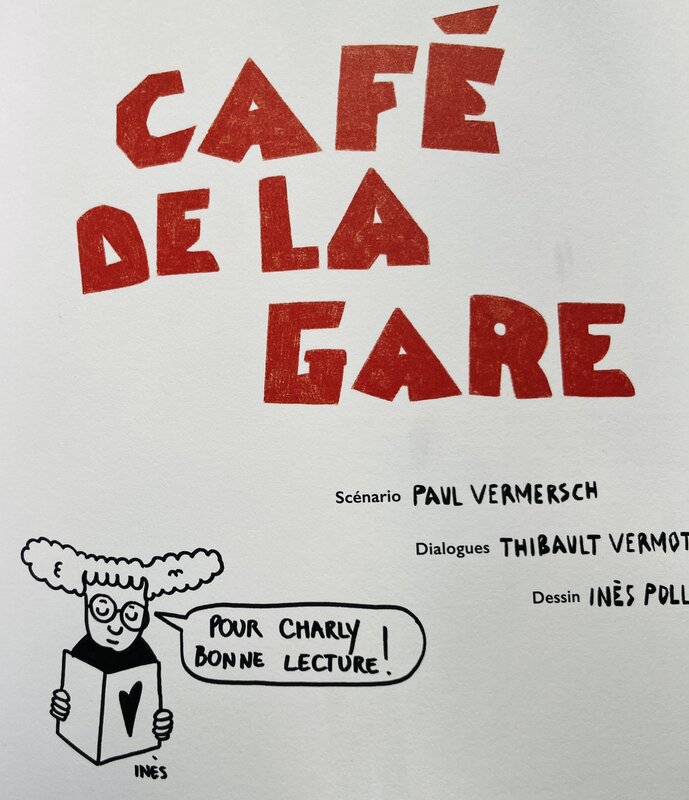 CAFÉ
DE LA
GARE
Scénario PAUL VERMERSCH
Dialogues THIBAULT VERMOT
Dessin INÈS POLL
POUR CHARLY
BONNE LECTURE !
INÈS